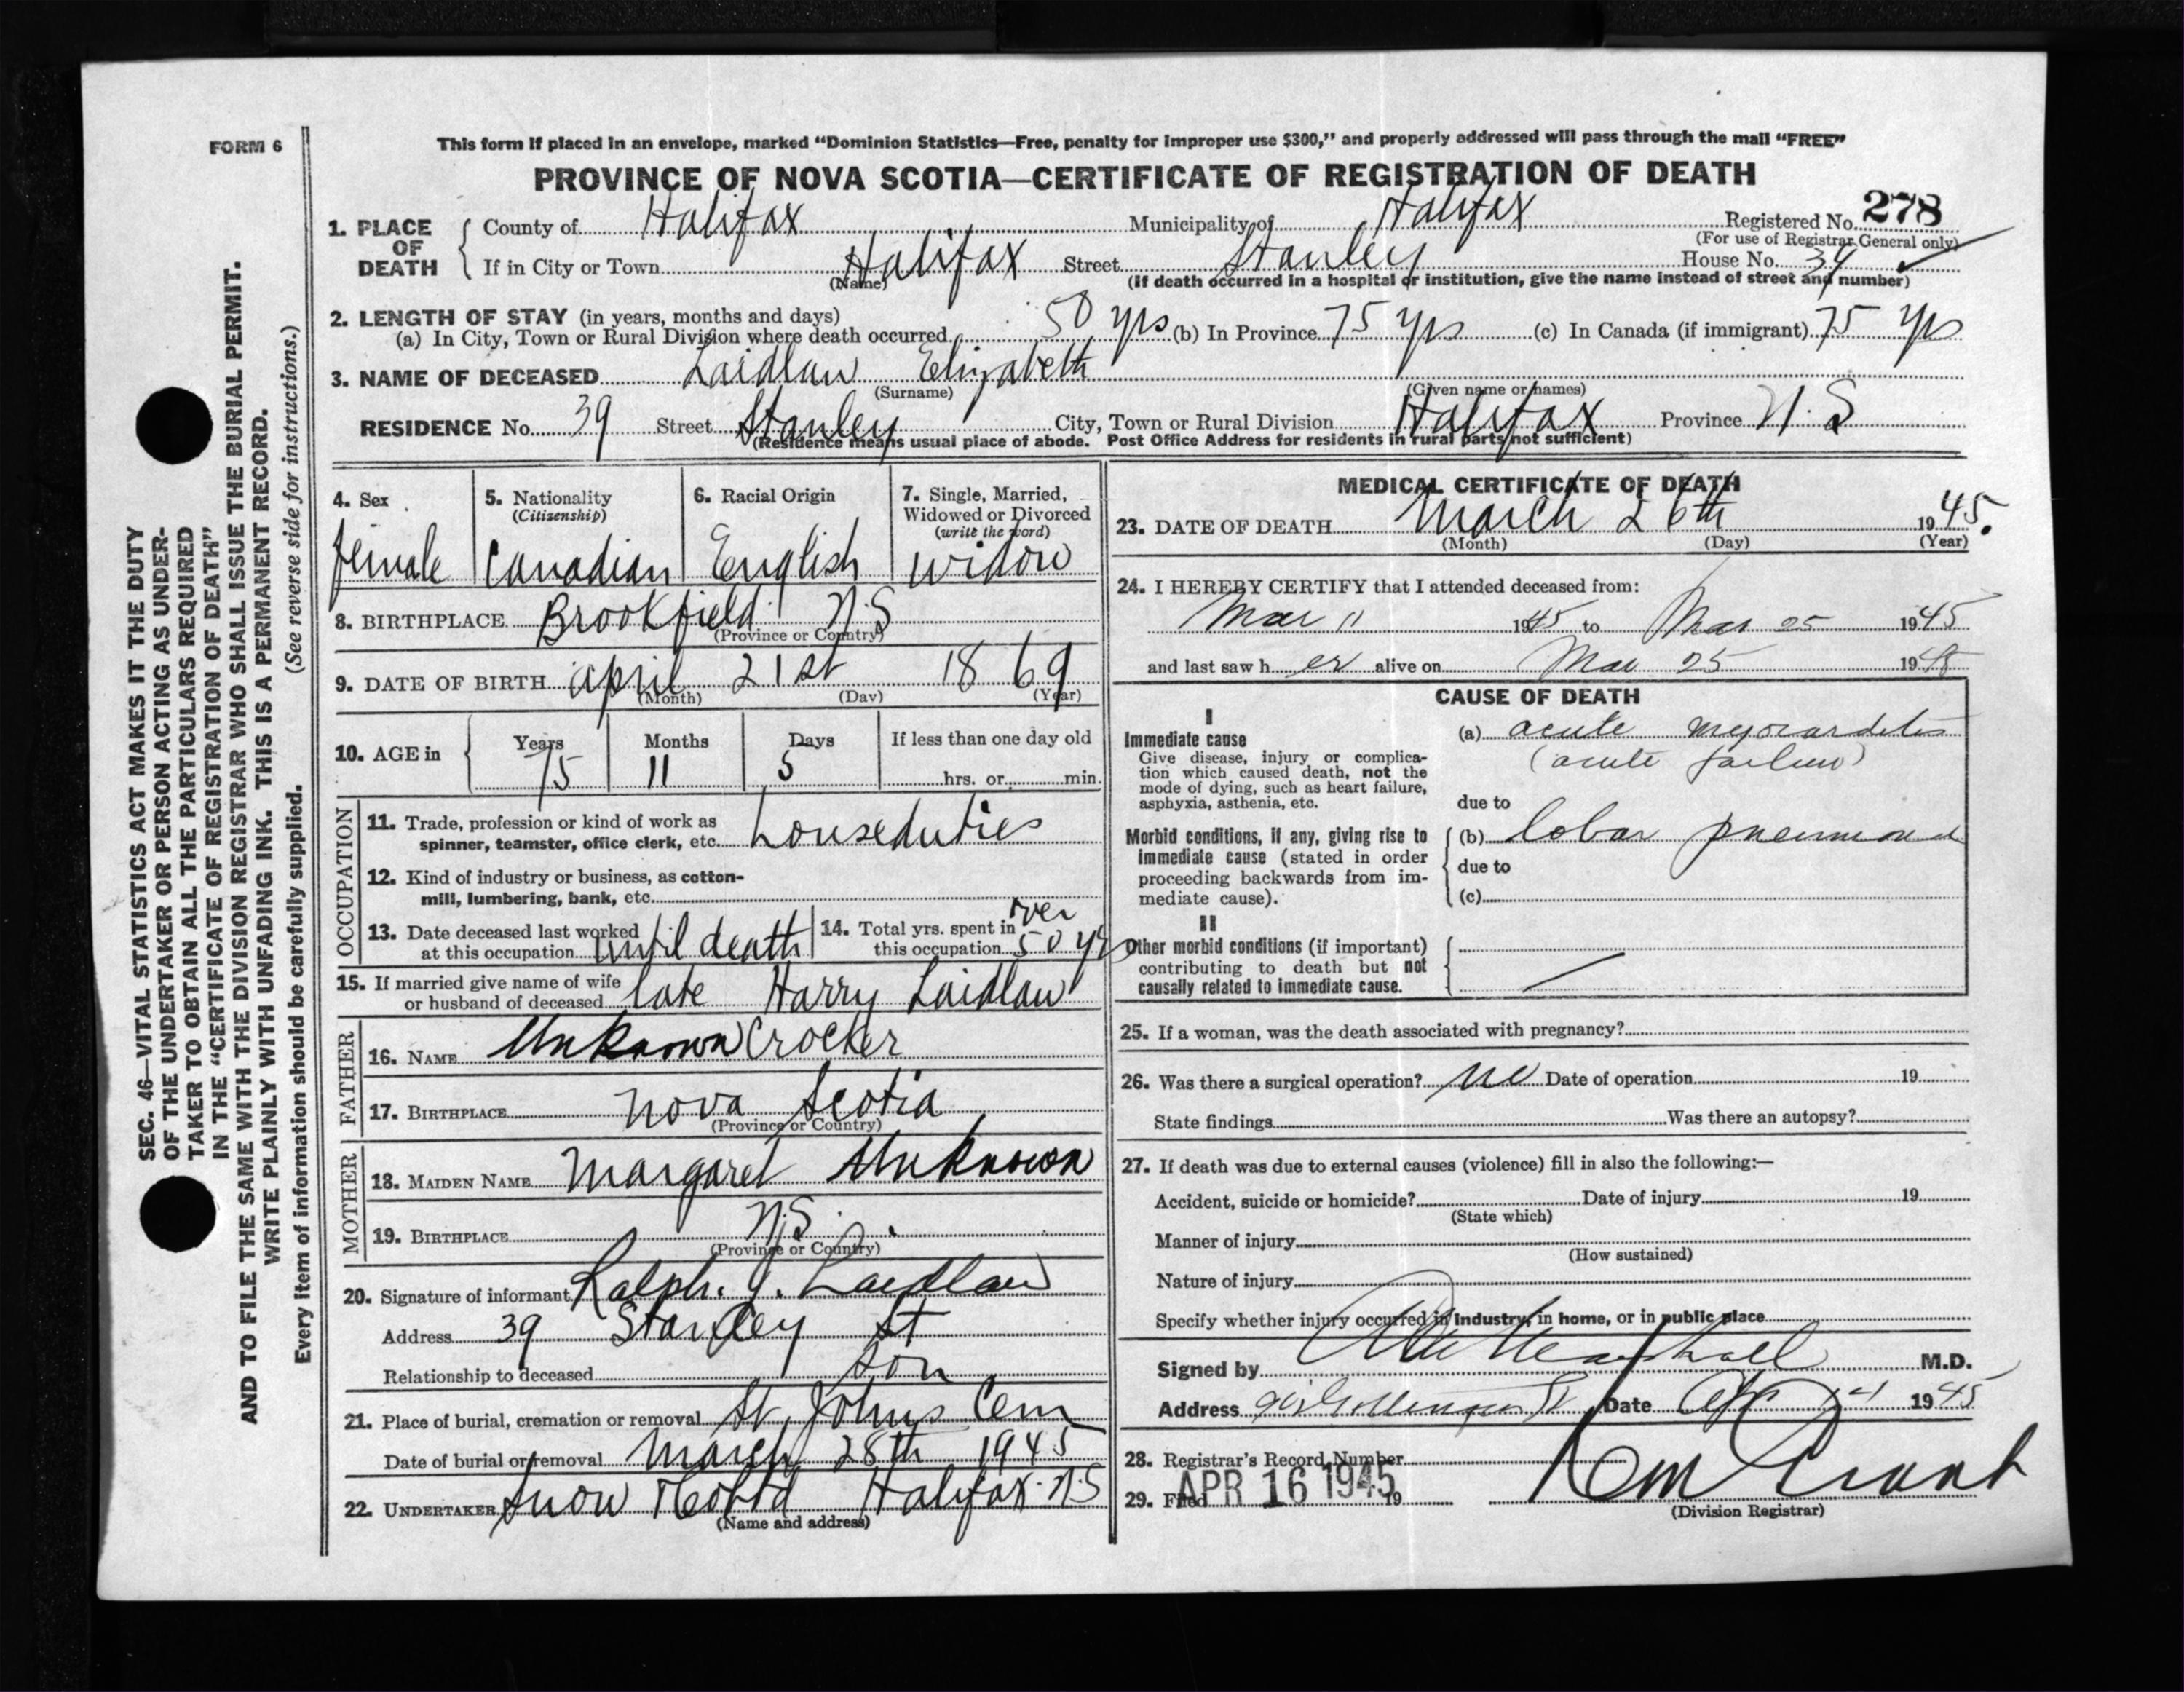 FORM 6
This form if placed in an envelope, marked “Dominion Statistics—Free, penalty for improper use $300,” and properly addressed will pass through the mail “FREE”
PROVINCE OF NOVA SCOTIA—CERTIFICATE OF REGISTRATION OF DEATH
1. PLACE OF DEATH County of Halifax Municipality of Halifax Registered No. 278
(For use of Registrar General only)
If in City or Town Halifax Street Stanley House No. 39
(Name) (If death occurred in a hospital or institution, give the name instead of street and number)
2. LENGTH OF STAY (in years, months and days)
(a) In City, Town or Rural Division where death occurred 50 yrs (b) In Province 75 yrs (c) In Canada (if immigrant) 75 yrs
3. NAME OF DECEASED Laidlaw Elizabeth
(Surname) (Given name or names)
RESIDENCE No. 39 Street Stanley City, Town or Rural Division Halifax Province N.S
(Residence means usual place of abode. Post Office Address for residents in rural parts not sufficient)
4. Sex
female
5. Nationality
(Citizenship)
Canadian
6. Racial Origin
English
7. Single, Married,
Widowed or Divorced
(write the word)
widow
8. BIRTHPLACE Brookfield N.S
(Province or Country)
9. DATE OF BIRTH april 21st 1869
(Month) (Day) (Year)
10. AGE in Years Months Days If less than one day old
75 11 5 hrs. or min.
OCCUPATION
11. Trade, profession or kind of work as
spinner, teamster, office clerk, etc. houseduties
12. Kind of industry or business, as cotton-
mill, lumbering, bank, etc.
13. Date deceased last worked
at this occupation until death
14. Total yrs. spent in over
this occupation 50 yrs
15. If married give name of wife
or husband of deceased late Harry Laidlaw
FATHER
16. NAME Unknown Crocker
17. BIRTHPLACE Nova Scotia
(Province or Country)
MOTHER
18. MAIDEN NAME Margaret Unknown
19. BIRTHPLACE N.S.
(Province or Country)
20. Signature of informant Ralph. J. Laidlaw
Address 39 Stanley St
Relationship to deceased Son
21. Place of burial, cremation or removal St. Johns Cem
Date of burial or removal March 28th 1945
22. UNDERTAKER Snow Halifax N.S
(Name and address)
MEDICAL CERTIFICATE OF DEATH
23. DATE OF DEATH March 26th 1945.
(Month) (Day) (Year)
24. I HEREBY CERTIFY that I attended deceased from:
Mar 11 1945 to Mar 25 1945
and last saw her alive on Mar 25 1945
CAUSE OF DEATH
I
Immediate cause
Give disease, injury or complica-
tion which caused death, not the
mode of dying, such as heart failure,
asphyxia, asthenia, etc.
(a) acute myocarditis
(acute failure)
due to
Morbid conditions, if any, giving rise to
immediate cause (stated in order
proceeding backwards from im-
mediate cause).
(b) lobar pneumonia
due to
(c)
II
Other morbid conditions (if important)
contributing to death but not
causally related to immediate cause.
25. If a woman, was the death associated with pregnancy?
26. Was there a surgical operation? no Date of operation 19
State findings Was there an autopsy?
27. If death was due to external causes (violence) fill in also the following:—
Accident, suicide or homicide? Date of injury 19
(State which)
Manner of injury
(How sustained)
Nature of injury
Specify whether injury occurred in industry, in home, or in public place
Signed by Marshall M.D.
Address Date Apr 1945
28. Registrar's Record Number
29. Filed APR 16 1945 19
(Division Registrar)
SEC. 46—VITAL STATISTICS ACT MAKES IT THE DUTY
OF THE UNDERTAKER OR PERSON ACTING AS UNDER-
TAKER TO OBTAIN ALL THE PARTICULARS REQUIRED
IN THE “CERTIFICATE OF REGISTRATION OF DEATH”
AND TO FILE THE SAME WITH THE DIVISION REGISTRAR WHO SHALL ISSUE THE BURIAL PERMIT.
WRITE PLAINLY WITH UNFADING INK. THIS IS A PERMANENT RECORD.
Every item of information should be carefully supplied. (See reverse side for instructions.)